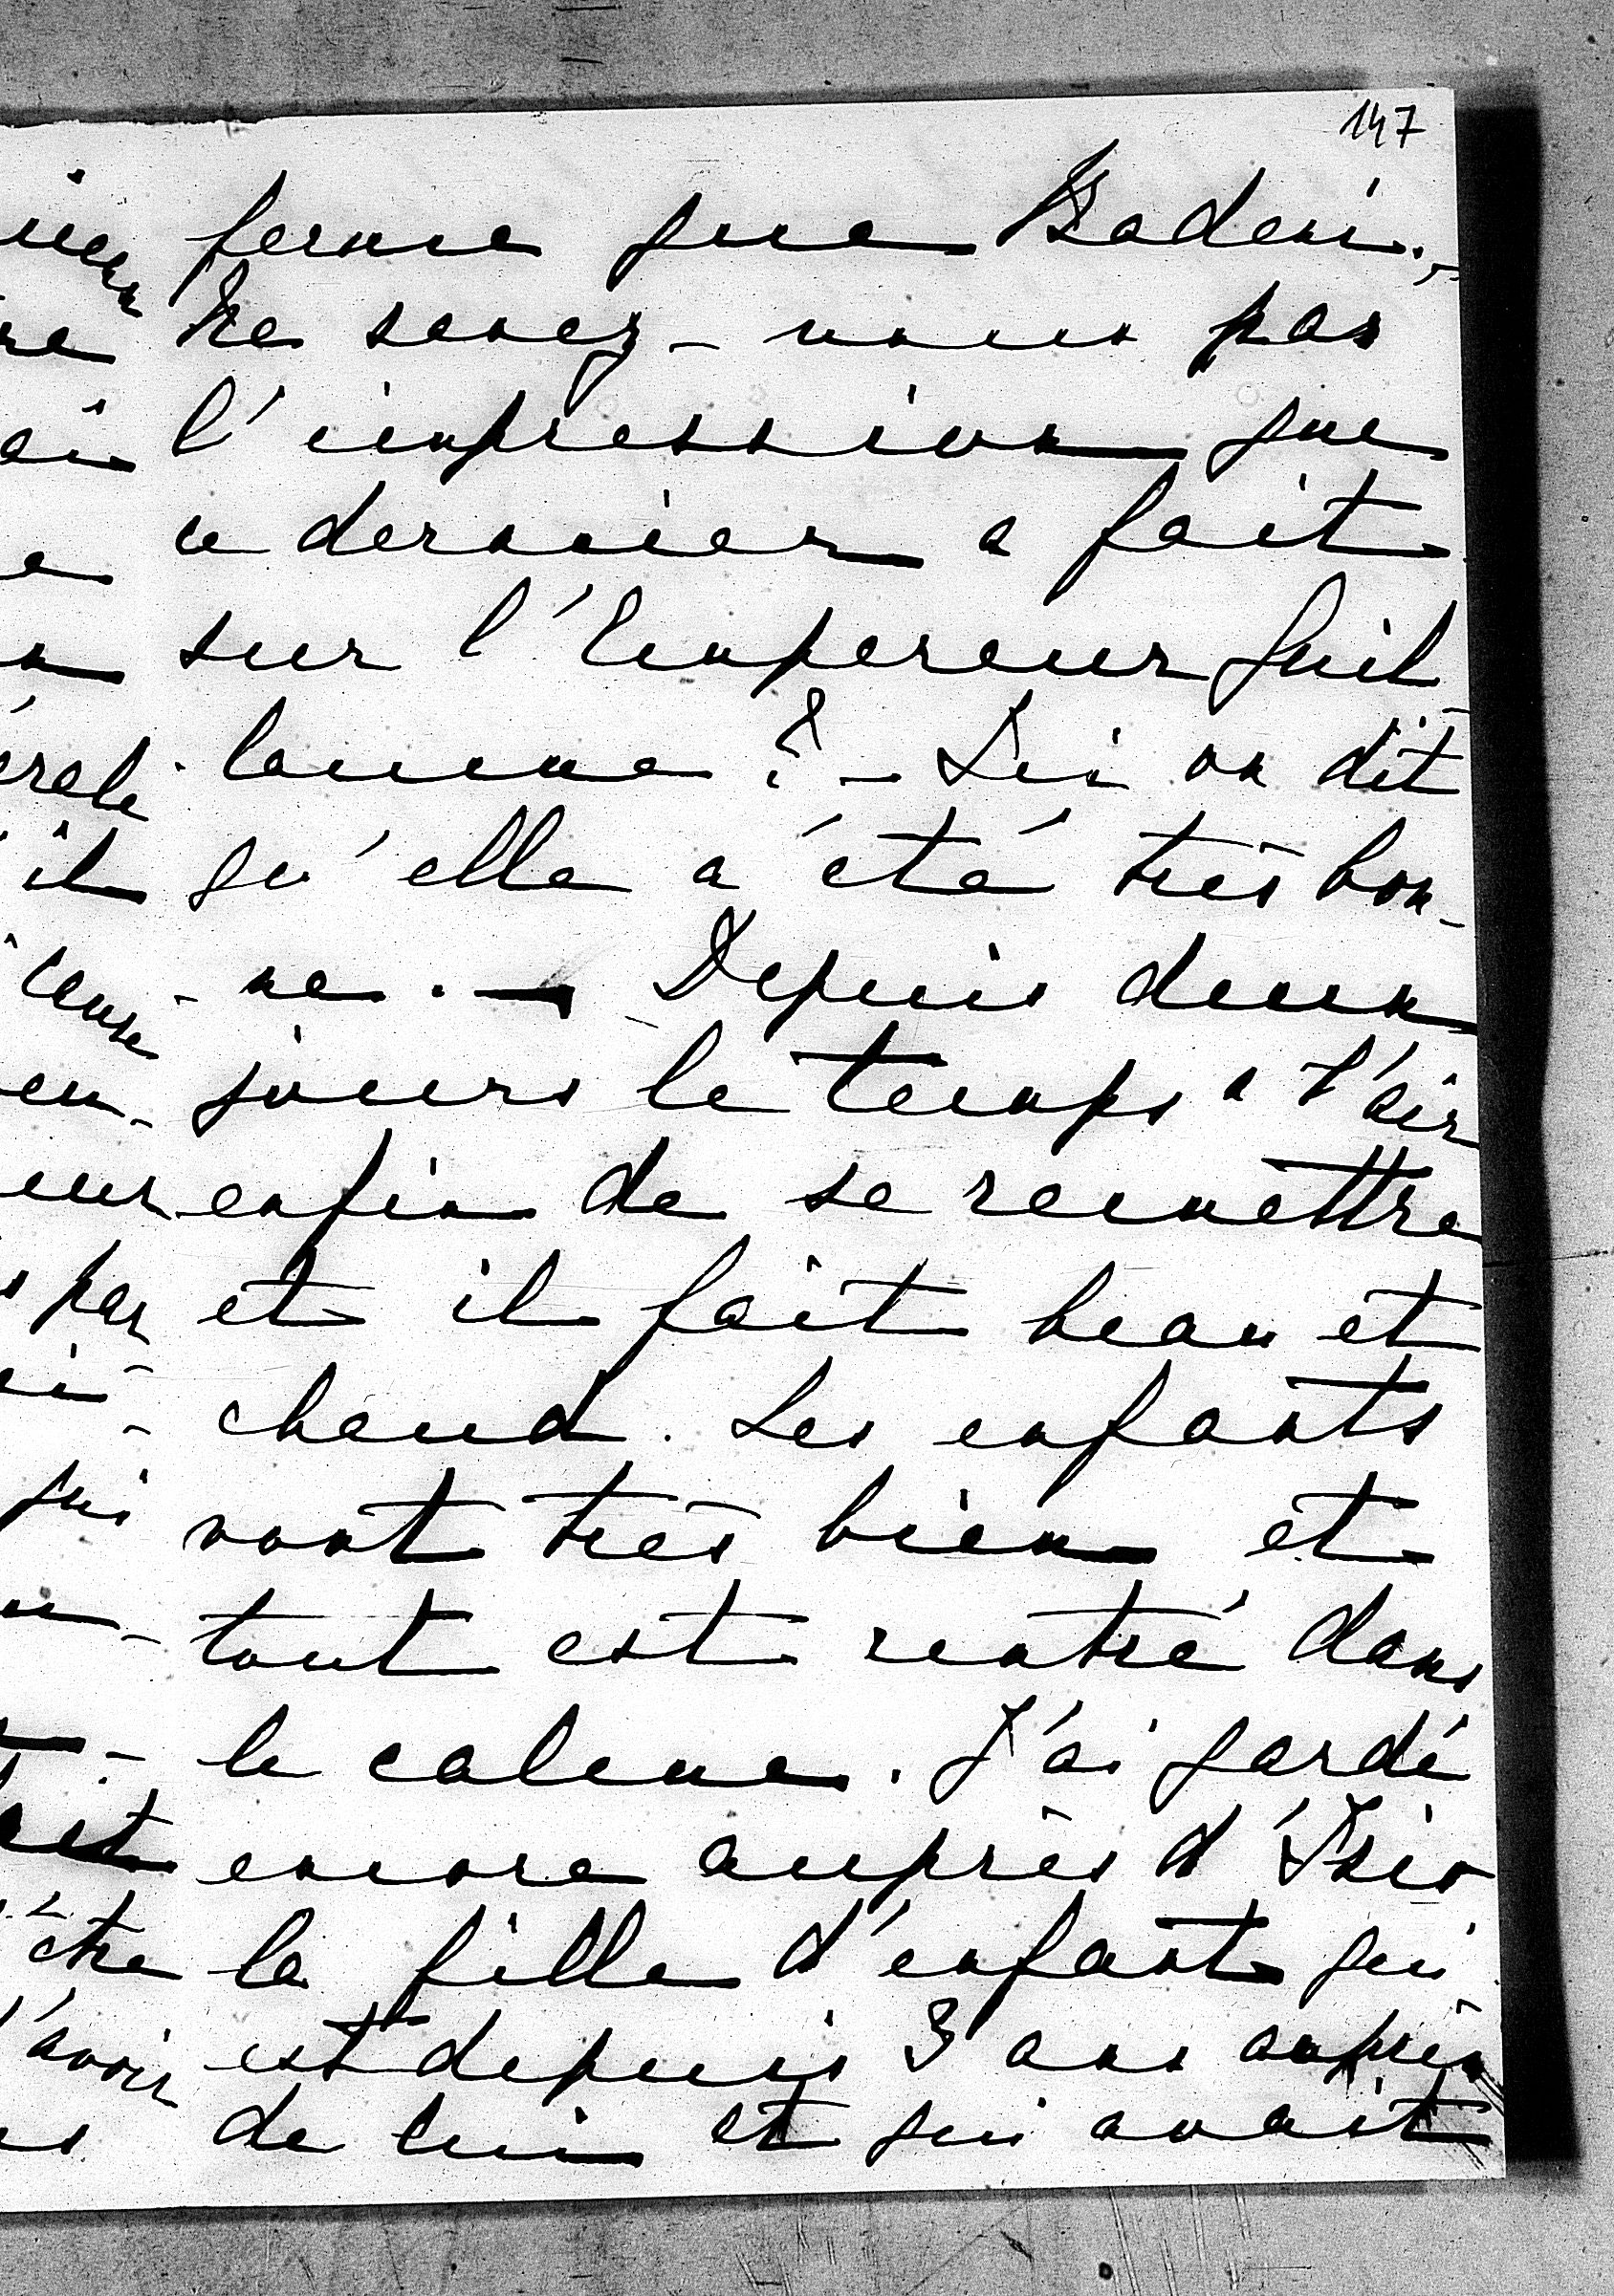 147
ferme que Badeni.,
Ne savez-vous pas
l'impression que
ce dernier a fait
sur l'Empereur Guil-
laume ? – Ici on dit
qu'elle a été très bon-
ne. – Depuis deux
jours le temps a l'air
enfin de se remettre
et il fait beau et
chaud. Les enfants
vont très bien et
tout est rentré dans
le calme. J'ai gardé
encore auprès d'
la fille d'enfant qui
est depuis 3 ans auprès
de lui et qui avait